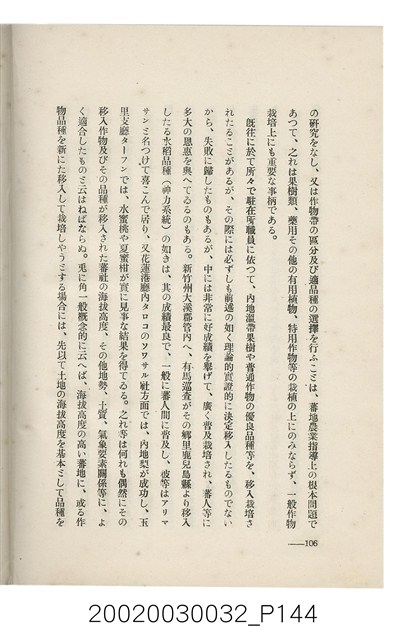 の研究をなし、又は作物帶の區分及び適品種の選擇を行ふことは、蕃地農業指導上の根本問題で
あつて、之れは果樹類、藥用その他の有用植物、特用作物等の栽植の上にのみならず、一般作物
栽培上にも重要な事柄である。
既往に於て所々で駐在所職員に依つて、内地溫帶果樹や普通作物の優良品種等を、移入栽培さ
れたことがあるが、その際には必ずしも前述の如く理論的實證的に決定移入したるものでない
から、失敗に歸したものもあるが、中には非常に好成績を擧げて、廣く普及栽培され、蕃人等に
多大の恩惠を與へてゐるのもある。新竹州大溪郡管内へ、有馬巡査がその鄕里鹿兒島縣より移入
したる水稻品種(神力系統)の如きは、其の成績最良で、一般に蕃人間に普及し、彼等はアリマ
サンと名つけて喜こんで居り、又花蓮港廳内タロコのソワサル社方面では、内地梨が成功し、玉
里支廳ターフンでは、水蜜桃や夏蜜柑が實に見事な結果を得てゐる。之れ等は何れも偶然にその
移入作物及びその品種が移入された蕃社の海拔高度、その他地勢、土質、氣象要素關係等に、よ
く適合したものと云はねばならぬ。兎に角一般概念的に云へば、海拔高度の高い蕃地に、或る作
物品種を新にた移入して栽培しやうとする場合には、先以て土地の海拔高度を基本として品種を
106
20020030032_P144